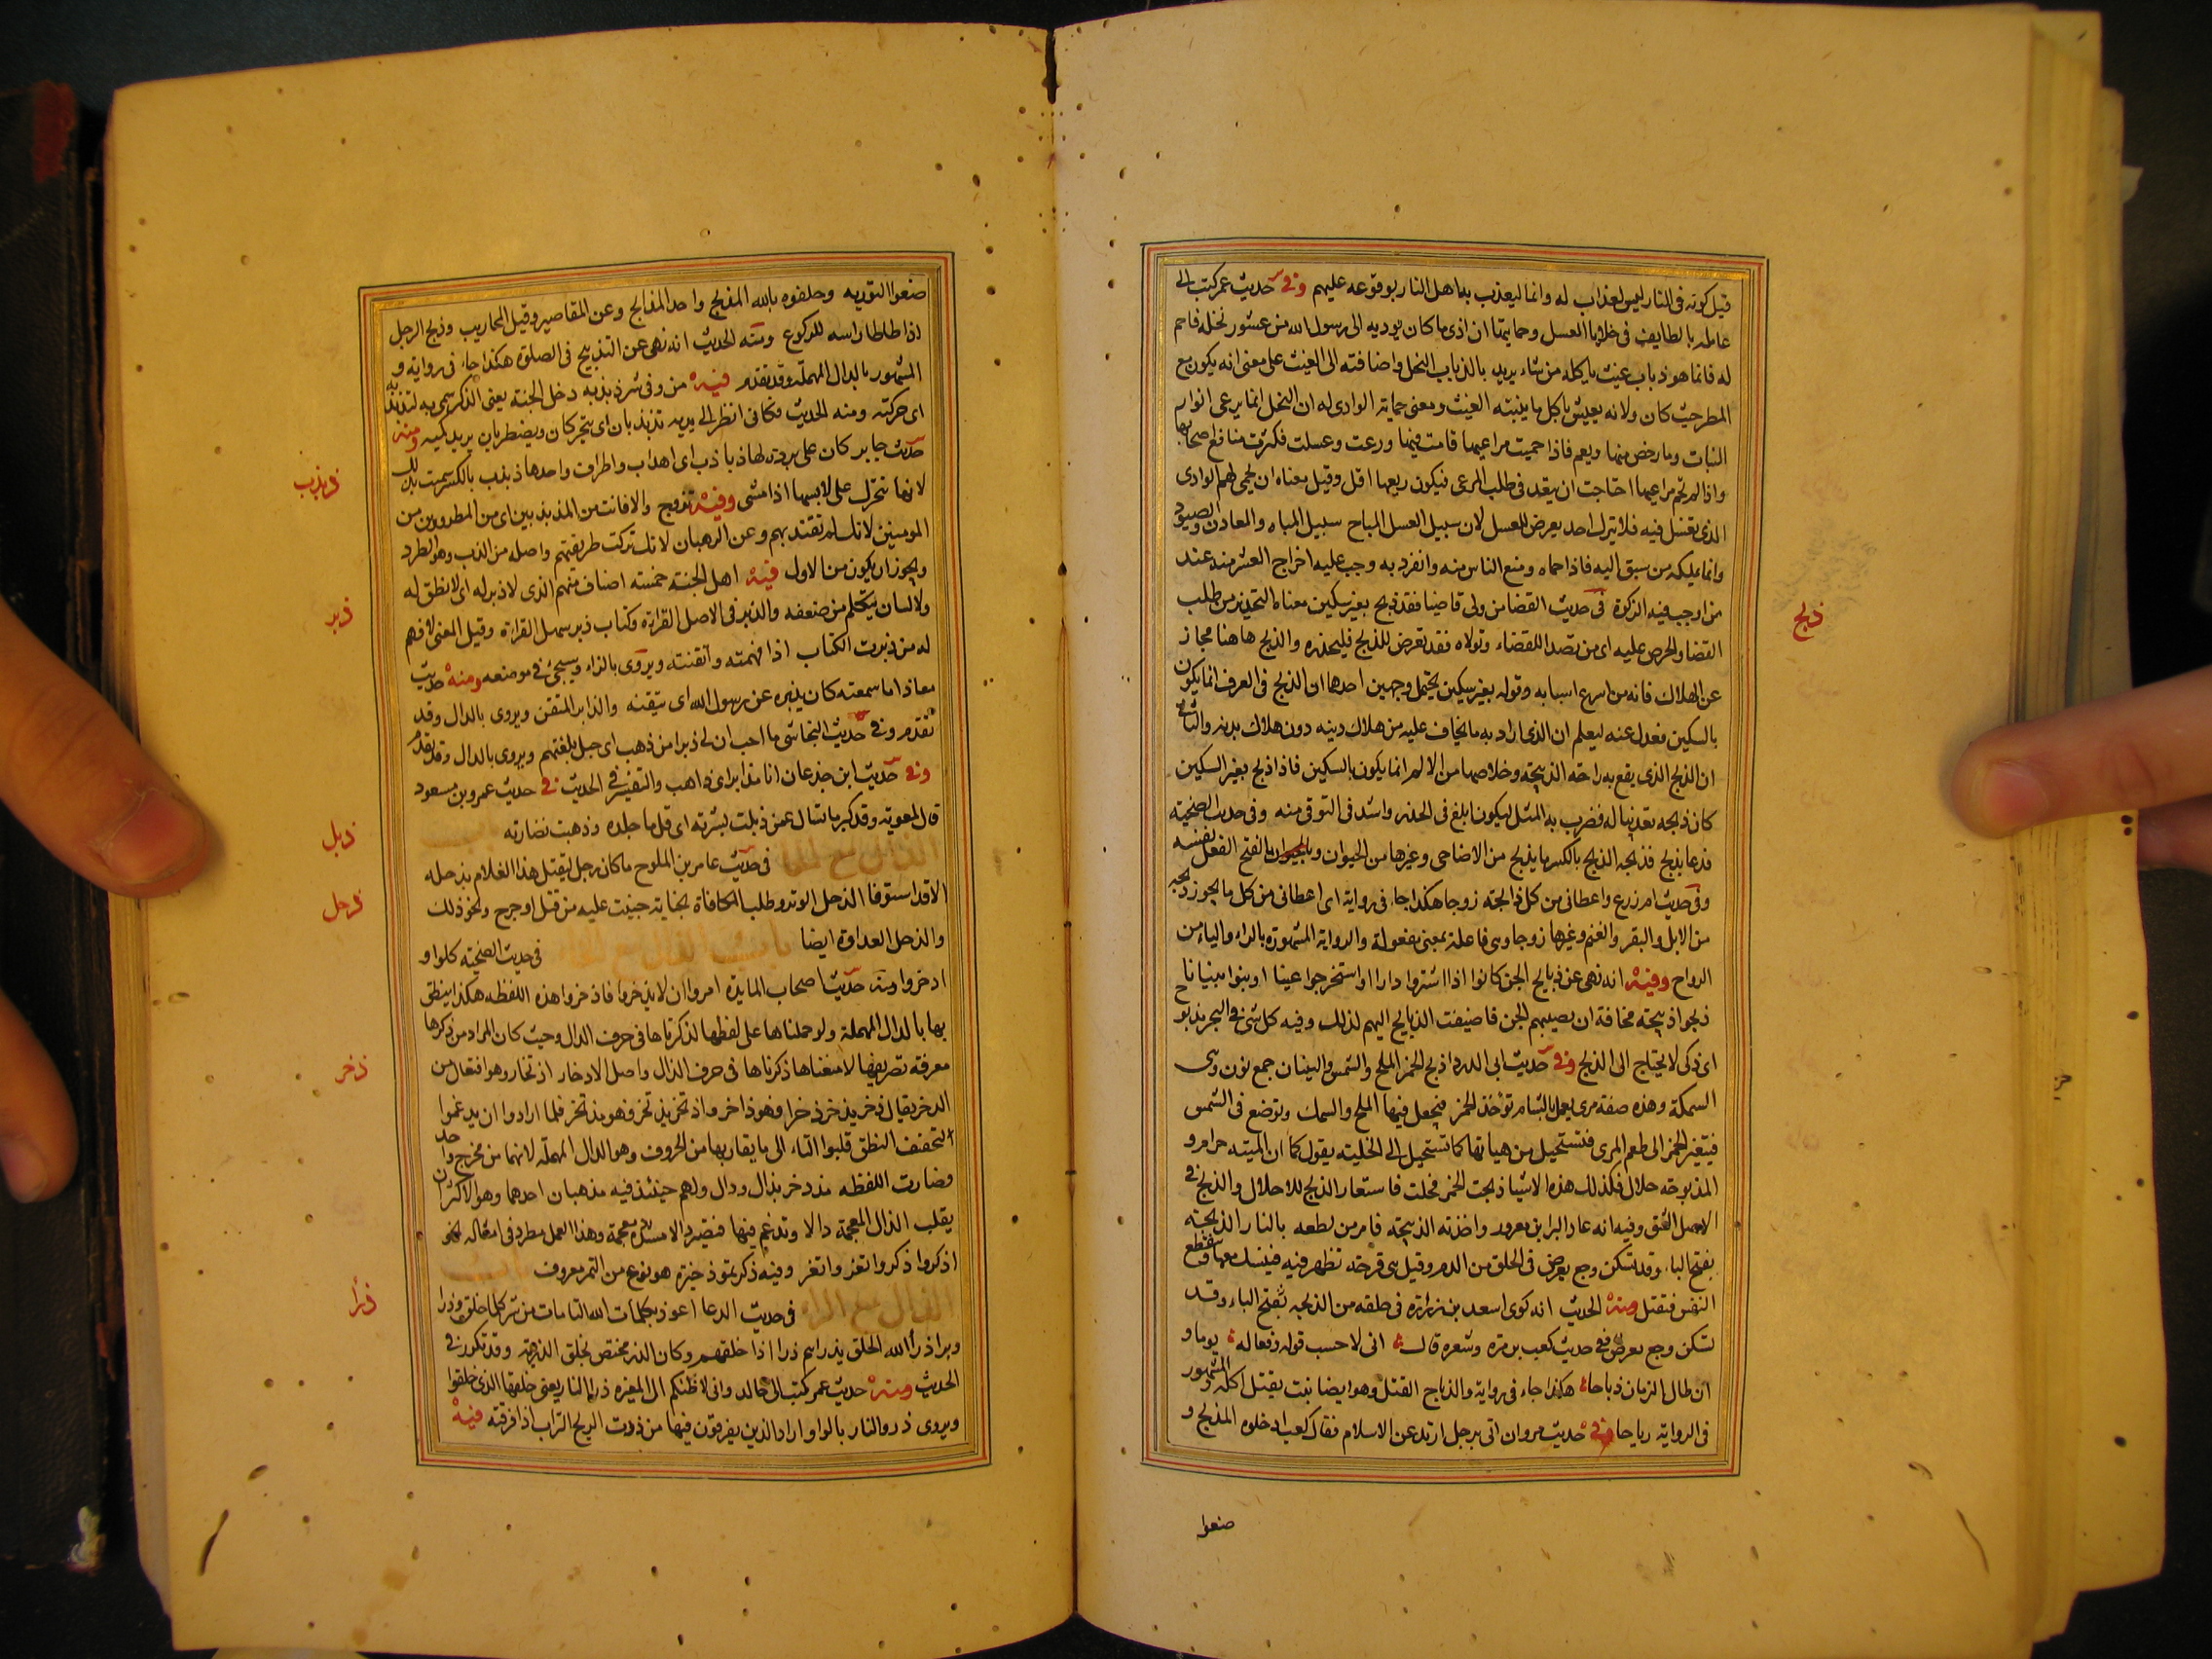 قيل كونه فى النار ليس لعذاب له وانما ليعذب به اهل النار بوقوعه عليهم وفى حديث عمر كتب الى
عامله بالطايف فى خلايا العسل وحمايتها ان ادى ما كان يوديه الى رسول الله من عشور نحله فاحم
له فانما هو ذباب غيث ياكله من شاء يريد بالذباب النحل واضافته الى الغيث على معنى انه يكون مع
المطر حيث كان ولانه يعيش باكل ما ينبته الغيث ومعنى حماية الوادى له ان النحل انما يرعى انوار
النبات وما رخص منها ونعم فاذا حميت مراعيها قامت فيها ورعت وعسلت فكثرت منافع اصحابها
واذا لم تحم مراعيها احتاجت ان يبعد فى طلب المرعى فيكون ريعها اقل وقيل معناه ان يحمى لهم الوادى
الذى يعسل فيه فلا يترك احد يعرض للعسل لان سبيل العسل المباح سبيل المياه والمعادن والصيود
وانما يملكه من سبق اليه فاذا حماه ومنع الناس منه وانفرد به وجب عليه اخراج العشر منه عند
من اوجب فيه الزكوة فى حديث القضا من ولى قاضيا فقد ذبح بغير سكين معناه التحذير من طلب
القضا والحرص عليه اى من تصدا للقضاء وتولاه فقد تعرض للذبح فليحذره والذبح هاهنا مجاز
عن الهلاك فانه من اسرع اسبابه وقوله بغير سكين يحتمل وجهين احدهما ان الذبح فى العرف انما يكون
بالسكين فعدل عنه ليعلم ان الذى اراد به ما يخاف عليه من هلاك دينه دون هلاك بدنه والثانى
ان الذبح الذى يقع به راحة الذبيحة وخلاصها من الالم انما يكون بالسكين فاذا ذبح بغير السكين
كان ذبحه تعذيبا له فضرب به المثل ليكون ابلغ فى الحذر واشد فى التوقى منه وفى حديث الضحية
فدعا بذبح فذبحه الذبح بالكسر ما يذبح من الاضاحى وغيرها من الحيوان وبالفتح الفعل نفسه
وفى حديث ام زرع واعطانى من كل ذابحة زوجا هكذا جاء فى رواية اى اعطانى من كل ما يجوز ذبحه
من الابل والبقر والغنم وغيرها زوجا وهى فاعلة بمعنى مفعولة والرواية المشهورة بالراء والياء من
الرواح وفيه انه نهى عن ذبايح الجن كانوا اذا اشتروا دارا او استخرجوا عينا او بنوا بنيانا
ذبحوا ذبيحة مخافة ان يصيبهم الجن فاضيفت الذبايح اليهم لذلك وفيه كل شئ فى البحر مذبوح
اى ذكى لا يحتاج الى الذبح وفى حديث ابى الدردا ذبح الخمر الملح والشمس والنينان جمع نون وهى
السمكة وهذه صفة مرى يعمل بالشام تؤخذ الخمر فيجعل فيها الملح والسمك وتوضع فى الشمس
فيتغير الخمر الى طعم المرى فتستحيل من هياتها كما تستحيل الى الخلية يقول كما ان الميتة حرام و
المذبوحة حلال فكذلك هذه الاشيا ذبحت الخمر فحلت فاستعار الذبح للاحلال والذبح فى
الاصل الشق وفيه انه عاد البرا بن معرور واخذته الذبيحة فامر من لطعه بالنار الذبحة
بفتح الباء وقد تسكن وجع يعرض فى الحلق من الدم وقيل هى قرحة تظهر فيه فينسد معها وينقطع
النفس فتقتل ومنه الحديث انه كوى اسعد بن زرارة فى حلقه من الذبحة بفتح الباء وقد
تسكن وجع يعرض وفى حديث كعب بن مرة وشعره قال انى لاحسب قوله وفعاله يوما و
ان طال الزمان ذباحا هكذا جاء فى رواية والذباح القتل وهو ايضا نبت يقتل اكله والمشهور
فى الرواية رياحا وفى حديث مروان اتى برجل ارتد عن الاسلام فقال كعب ادخلوه المذبح و
صنعوا
ذبح
صنعوا التورية وحلفوه بالله المذبح واحد المذابح وعن المقاصير وقيل المحاريب وذبح الرجل
اذا طاطا راسه للركوع ومنه الحديث انه نهى عن التذبيح فى الصلوة هكذا جاء فى رواية و
المشهور بالدال المهملة وقد تقدم فيه من وقى شر ذبذبه دخل الجنة يعنى الذكر سمى به لتذبذبه
اى حركته ومنه الحديث فكانى انظر الى يديه تذبذبان اى تتحركان وتضطربان يريد كميه ومنه
حديث جابر كان على بردة لها ذباذب اى اهداب واطراف واحدها ذبذب بالكسر سميت بذلك
لانها تتحرك على لابسها اذا مشى وفيه تزوج والا فانت من المذبذبين اى من المطرودين من
المومنين لانك لم تقتد بهم وعن الرهبان لانك تركت طريقتهم واصله من الذب وهو الطرد
ويجوز ان يكون من الاول فيه اهل الجنة خمسة اصناف منهم الذى لا ذبر له اى لا نطق له
ولا لسان يتكلم من ضعفه والذبر فى الاصل القراءة وكتاب ذبر سهل القراءة وقيل المعنى لا فهم
له من ذبرت الكتاب اذا فهمته واتقنته ويروى بالزاء وسيجئ فى موضعه ومنه حديث
معاذ اما سمعته كان يذبره عن رسول الله اى يتقنه والذابر المتقن ويروى بالدال وقد
تقدم وفى حديث النجاشى ما احب ان لى ذبرا من ذهب اى جبل بلغتهم ويروى بالدال وقد تقدم
وفى حديث ابن جذعان انا مذابر اى ذاهب والتفسير فى الحديث فى حديث عمرو بن مسعود
قال لمعوية وقد كبر ما تسال عمن ذبلت بشرته اى قل ما جلده وذهبت نضارته
الذال مع الحا فى حديث عامر بن الملوح ما كان رجل ليقتل هذا الغلام بذحله
الا قد استوفا الذحل الوتر وطلب المكافاة بجناية جنيت عليه من قتل او جرح ونحو ذلك
والذحل العداوة ايضا باب الذال مع الخاء فى حديث الضحية كلوا و
ادخروا ومنه حديث اصحاب المايدة امروا ان لا يذخروا فاذخروا هذه اللفظه هكذا ينطق
بها بالدال المهملة ولو حملناها على لفظها لذكرناها فى حرف الدال وحيث كان المراد من ذكرها
معرفة تصريفها لا معناها ذكرناها فى حرف الذال واصل الادخار اذتخار وهو افتعال من
الذخر يقال ذخر يذخر ذخرا فهو ذاخر واذتخر يذتخر فهو مذتخر فلما ارادوا ان يدغموا
لتخفف النطق قلبوا التاء الى ما يقاربها من الحروف وهو الدال المهملة لانهما من مخرج واحد
فصارت اللفظه مذدخر بذال ودال ولهم حينئذ فيه مذهبان احدهما وهو الاكثر ان
يقلب الذال المعجمة دالا وتدغم فيها فتصير دالا مشددة معجمة وهذا العمل مطرد فى امثاله نحو
اذكروا ذكروا اتغر واثغر وفيه ذكر تمر ذخيرة هو نوع من التمر معروف
الذال مع الراء فى حديث الدعا اعوذ بكلمات الله التامات من شر كلما خلق وذرا
وبرا ذرأ الله الخلق يذراهم ذرا اذا خلقهم وكان الذر مختص بخلق الذرية وقد تكرر فى
الحديث ومنه حديث عمر كتب الى خالد وانى لاظنكم ال المغيرة ذرا النار يعنى خلقها الذى خلقوا
ويروى ذرو النار بالواو اراد الذين يفرقون فيها من ذرت الريح التراب اذا فرقته فيه
ذبذب
ذبر
ذبل
ذحل
ذخر
ذرأ